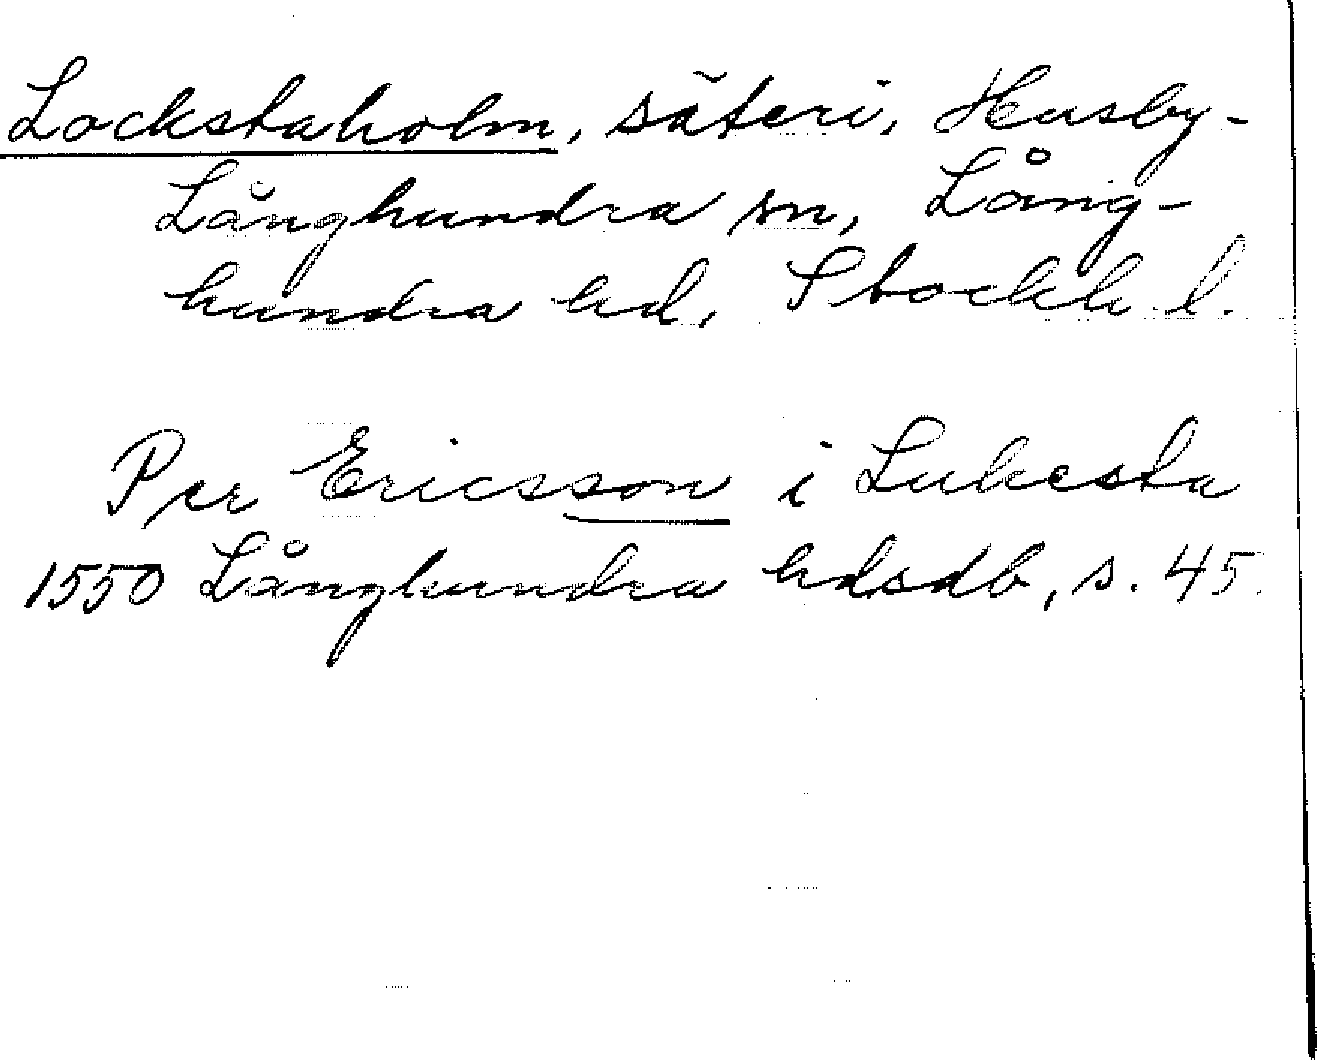 Lockstaholm, säteri, Husby-
Långhundra sn, Lång-
hundra hd, Stockh l.
Per Ericsson i Lukesta
1550 Långhundra hdsdb, s. 45.